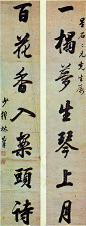 星石二兄先生属
一榻梦生琴上月
百花香入案頭詩
少穆林